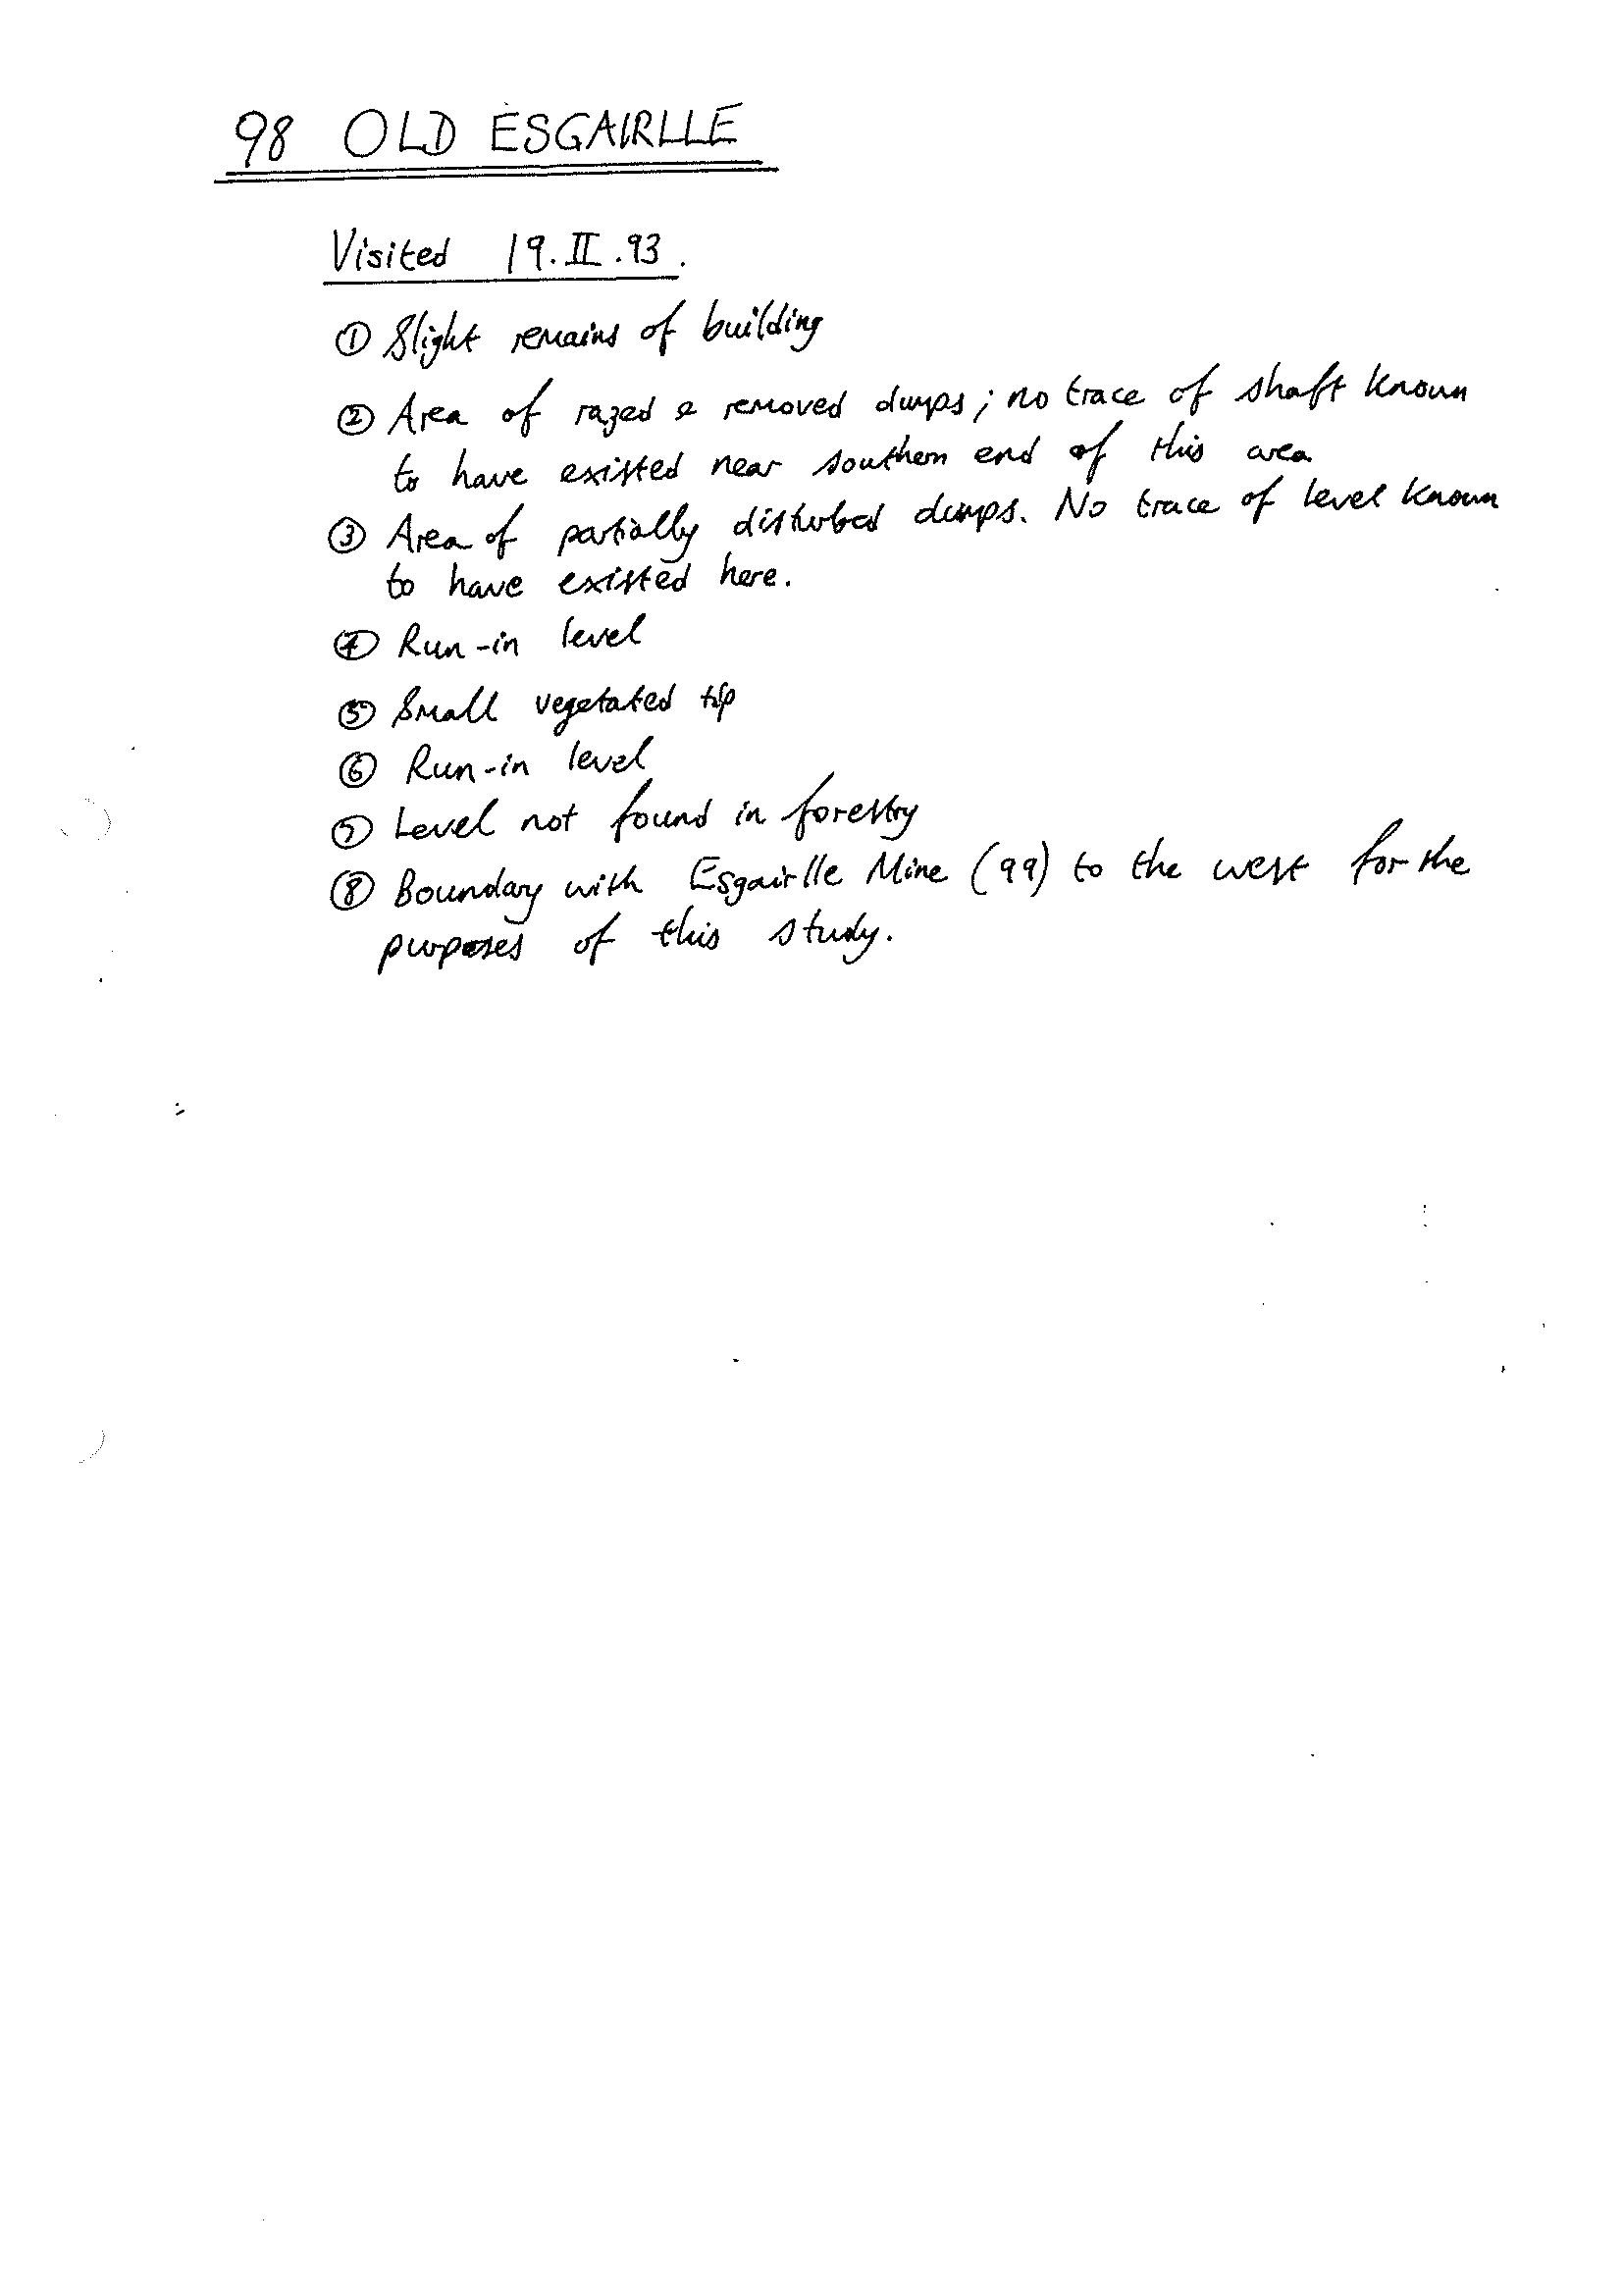 98 OLD ESGAIRLLE
Visited 19.II.93.
① Slight remains of building
② Area of razed & removed dumps; no trace of shaft known
to have existed near southern end of this area
③ Area of partially disturbed dumps. No trace of level known
to have existed here.
④ Run-in level
⑤ Small vegetated tip
⑥ Run-in level
⑦ Level not found in forestry
⑧ Boundary with Esgairlle Mine (99) to the west for the
purposes of this study.